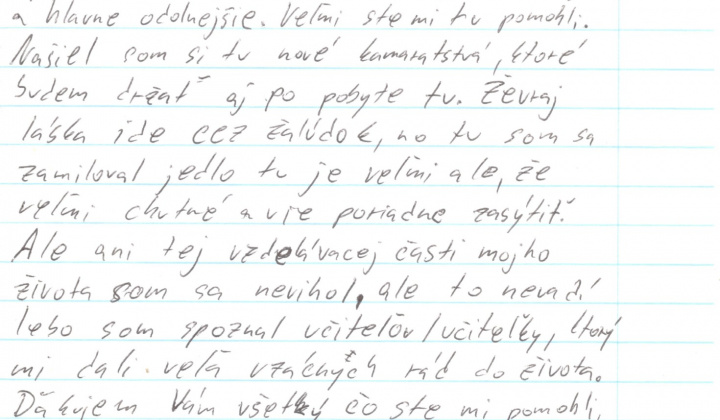 a hlavne odolnejšie. Veľmi ste mi tu pomohli.
Našiel som si tu nové kamaratstvá, ktoré
budem držať aj po pobyte tu. Ževraj
láska ide cez žalúdok, no tu som sa
zamiloval jedlo tu je veľmi ale, že
veľmi chutné a vie poriadne zasýtiť.
Ale ani tej vzdelávacej časti mojho
života som sa nevihol, ale to nevadí
lebo som spoznal učiteľov/učiteľky, ktorý
mi dali veľa vzácných rád do života.
Ďakujem Vám všetký čo ste mi pomohli,